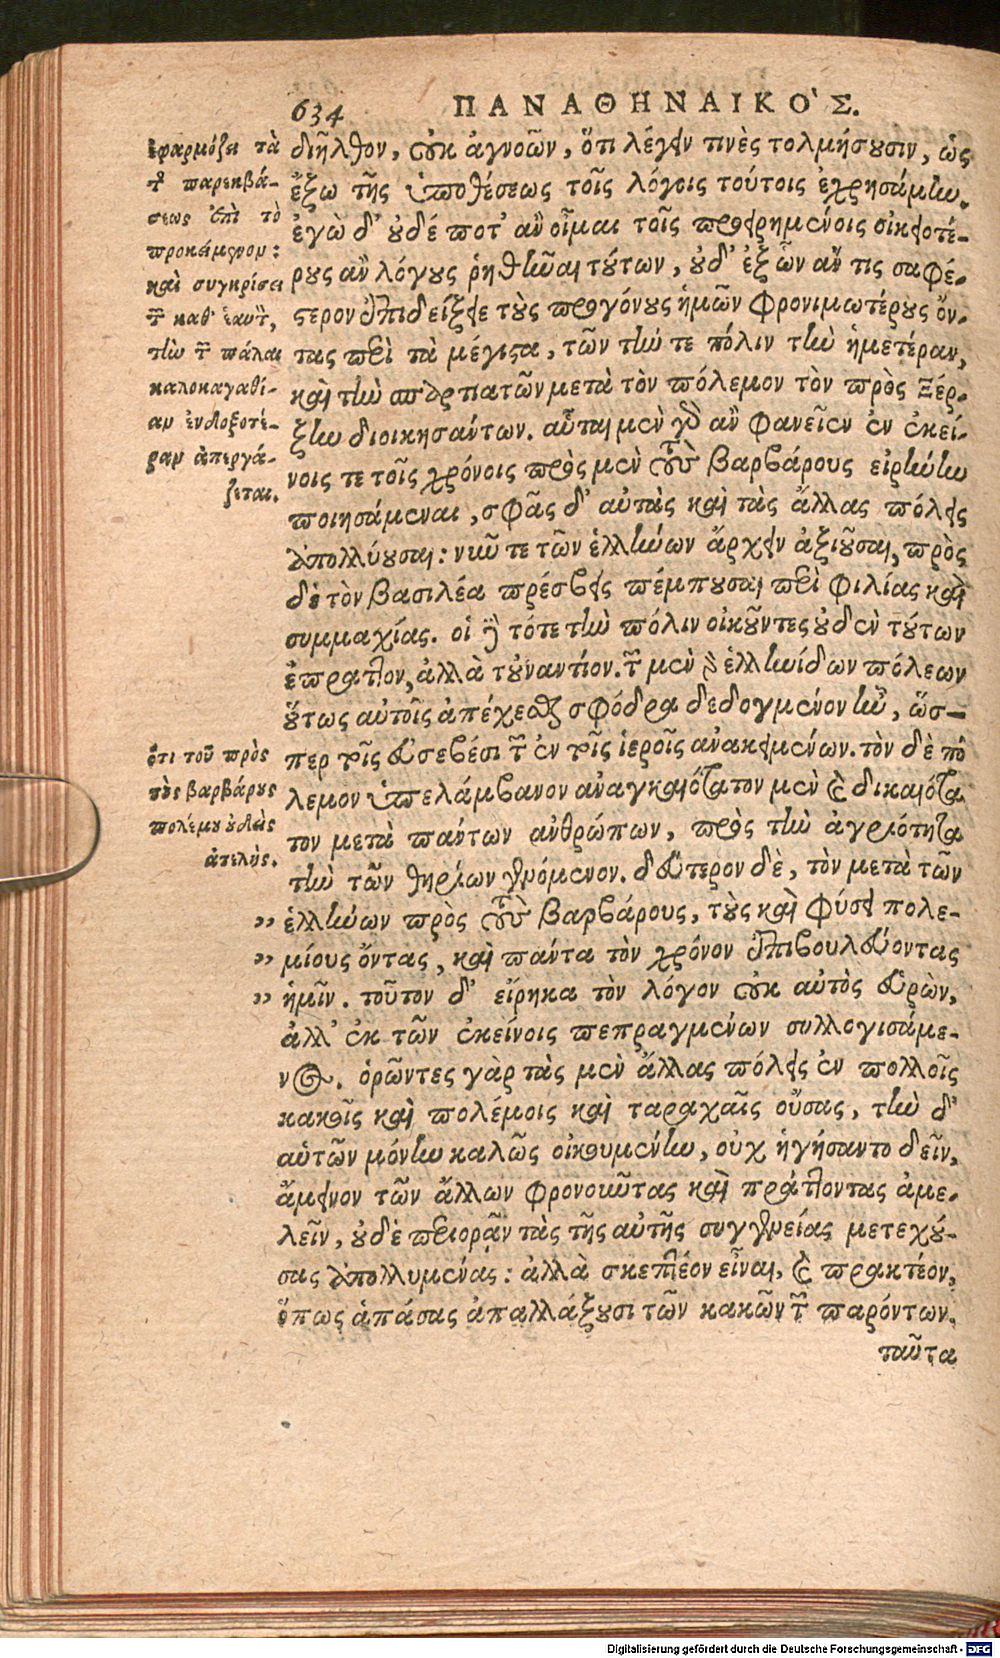 634
ΠΑΝΑΘΗΝΑΙΚΟ'Σ.
διῆλθον, οὐκ ἀγνοῶν, ὅτι λέγειν τινὲς τολμήσουσιν, ὡς
ἔξω τῆς ὑποθέσεως τοῖς λόγοις τούτοις ἐχρησάμην.
ἐγὼ δ' οὐδέ ποτ' ἂν οἶμαι τοῖς προειρημένοις οἰκειοτέ-
ρους ἂν λόγους ῥηθῆναι τούτων, οὐδ' ἐξ ὧν ἄν τις σαφέ-
στερον ἐπιδείξειε τοὺς προγόνους ἡμῶν φρονιμωτέρους ὄν-
τας περὶ τὰ μέγιστα, τῶν τήν τε πόλιν τὴν ἡμετέραν,
καὶ τὴν σπαρτιατῶν μετὰ τὸν πόλεμον τὸν πρὸς Ξέρ-
ξην διοικησάντων. αὗται μὲν γὰρ ἂν φανεῖεν ἐν ἐκεί-
νοις τε τοῖς χρόνοις πρὸς μὲν τοὺς βαρβάρους εἰρήνην
ποιησάμεναι, σφᾶς δ' αὐτὰς καὶ τὰς ἄλλας πόλεις
ἀπολλύουσαι: νῦν τε τῶν ἑλλήνων ἄρχειν ἀξιοῦσαι, πρὸς
δὲ τὸν βασιλέα πρέσβεις πέμπουσαι περὶ φιλίας καὶ
συμμαχίας. οἱ δὲ τότε τὴν πόλιν οἰκοῦντες οὐδὲν τούτων
ἔπραττον, ἀλλὰ τοὐναντίον. τῶν μὲν γὰρ ἑλληνίδων πόλεων
οὕτως αὐτοῖς ἀπέχεσθαι σφόδρα δεδογμένον ἦν, ὥσ-
περ τοῖς εὐσεβέσι τῶν ἐν τοῖς ἱεροῖς ἀνακειμένων. τὸν δὲ πό
λεμον ὑπελάμβανον ἀναγκαιότατον μὲν καὶ δικαιότα
τον μετὰ πάντων ἀνθρώπων, πρὸς τὴν ἀγριότητα
τὴν τῶν θηρίων γινόμενον. δεύτερον δὲ, τὸν μετὰ τῶν
ἑλλήνων πρὸς τοὺς βαρβάρους, τοὺς καὶ φύσει πολε-
μίους ὄντας, καὶ πάντα τὸν χρόνον ἐπιβουλεύοντας
ἡμῖν. τοῦτον δ' εἴρηκα τὸν λόγον οὐκ αὐτὸς εὑρὼν,
ἀλλ' ἐκ τῶν ἐκείνοις πεπραγμένων συλλογισάμε-
νος. ὁρῶντες γὰρ τὰς μὲν ἄλλας πόλεις ἐν πολλοῖς
κακοῖς καὶ πολέμοις καὶ ταραχαῖς οὔσας, τὴν δ'
αὑτῶν μόνην καλῶς οἰκουμένην, οὐχ ἡγήσαντο δεῖν,
ἄμεινον τῶν ἄλλων φρονοῦντας καὶ πράττοντας ἀμε-
λεῖν, οὐδὲ περιορᾶν τὰς τῆς αὐτῆς συγγενείας μετεχού-
σας ἀπολλυμένας: ἀλλὰ σκεπτέον εἶναι, καὶ πρακτέον,
ὅπως ἁπάσας ἀπαλλάξουσι τῶν κακῶν τῶν παρόντων.
ταῦτα
ἐφαρμόζει τὰ
τῆς παρεκβά-
σεως ἐπὶ τὸ
προκείμενον:
καὶ συγκρίσει
τῶν καθ' ἑαυτὸν,
τὴν τῶν πάλαι
καλοκαγαθί-
αν ἐνδοξοτέ-
ραν ἀπεργά-
ζεται.
ὅτι τοῦ πρὸς
τοὺς βαρβάρους
πολέμου οὐδεὶς
ἀτελής.